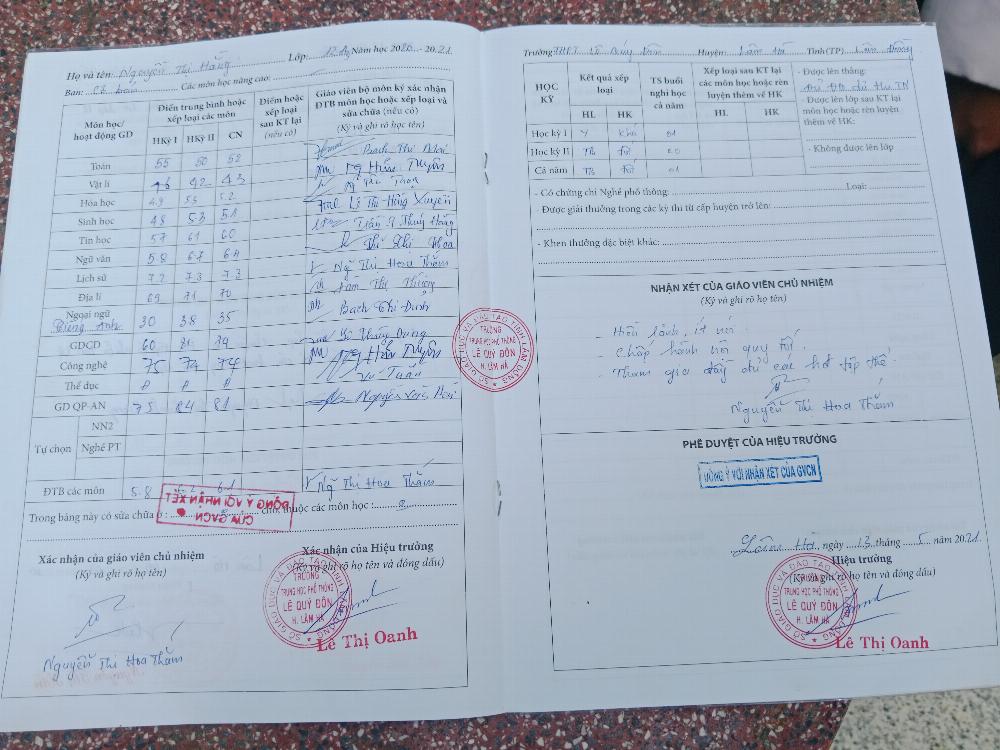 Họ và tên: Nguyễn Thị Hằng Lớp: 12A Năm học 2020 - 2021
Ban: Các môn học nâng cao:
Môn học/ hoạt động GD
Điểm trung bình hoặc xếp loại các môn
HKỳ I HKỳ II CN
Điểm hoặc xếp loại sau KT lại (nếu có)
Giáo viên bộ môn ký xác nhận ĐTB môn học hoặc xếp loại và sửa chữa (nếu có)
(Ký và ghi rõ họ tên)
Toán 55 50 52 Bạch Thị
Vật lí 42 43
Hóa học 49 53 52
Sinh học 48 53 51 Lê Thị Hồng Xuyến
Tin học 57 61 60
Ngữ văn 58 67 64
Lịch sử 72 73 73 Ng Thị Hoa Thắm
Địa lí 69 71 70
Ngoại ngữ Tiếng Anh 30 38 35 Bạch Thị Định
GDCD 60 81 74
Công nghệ 75 74
Thể dục Đ Đ Đ
GD QP-AN 75 84 81
Tự chọn
NN2
Nghề PT
ĐTB các môn 5.8 Ng Thị Hoa Thắm
Trong bảng này có sửa chữa ở : chỗ, thuộc các môn học :
ĐỒNG Ý VỚI NHẬN XÉT
CỦA GVCN
Xác nhận của giáo viên chủ nhiệm
(Ký và ghi rõ họ tên)
Nguyễn Thị Hoa Thắm
Xác nhận của Hiệu trưởng
(Ký và ghi rõ họ tên và đóng dấu)
SỞ GIÁO DỤC VÀ ĐÀO TẠO TỈNH LÂM ĐỒNG
TRƯỜNG
TRUNG HỌC PHỔ THÔNG
LÊ QUÝ ĐÔN
H. LÂM HÀ
Lê Thị Oanh
SỞ GIÁO DỤC VÀ ĐÀO TẠO TỈNH LÂM ĐỒNG
TRƯỜNG
TRUNG HỌC PHỔ THÔNG
LÊ QUÝ ĐÔN
H. LÂM HÀ
Trường THPT Lê Quý Đôn Huyện: Lâm Hà Tỉnh (TP) Lâm Đồng
HỌC KỲ
Kết quả xếp loại
HL HK
TS buổi nghỉ học cả năm
Xếp loại sau KT lại các môn học hoặc rèn luyện thêm về HK
HL HK
- Được lên thẳng:
- Được lên lớp sau KT lại môn học hoặc rèn luyện thêm về HK:
- Không được lên lớp
Học kỳ I Y Khá 01
Học kỳ II Tb Tốt 00
Cả năm Tb Tốt 01
- Có chứng chỉ Nghề phổ thông: Loại:
- Được giải thưởng trong các kỳ thi từ cấp huyện trở lên:
- Khen thưởng đặc biệt khác:
NHẬN XÉT CỦA GIÁO VIÊN CHỦ NHIỆM
(Ký và ghi rõ họ tên)
- Hiền lành, ít nói
- Chấp hành nội quy tốt
- Tham gia đầy đủ các hđ tập thể
Nguyễn Thị Hoa Thắm
PHÊ DUYỆT CỦA HIỆU TRƯỞNG
ĐỒNG Ý VỚI NHẬN XÉT CỦA GVCN
Lâm Hà, ngày 13 tháng 5 năm 2021
Hiệu trưởng
(Ký và ghi rõ họ tên và đóng dấu)
SỞ GIÁO DỤC VÀ ĐÀO TẠO TỈNH LÂM ĐỒNG
TRƯỜNG
TRUNG HỌC PHỔ THÔNG
LÊ QUÝ ĐÔN
H. LÂM HÀ
Lê Thị Oanh